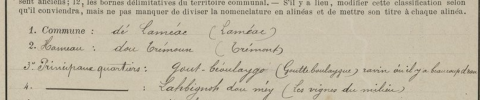 sent anciens; 12, les bornes délimitatives du territoire communal. — S'il y a lieu, modifier cette classification selon
qu'il conviendra, mais ne pas manquer de diviser la nomenclature en alinéas et de mettre son titre à chaque alinéa.
1. Commune : dé Laméac (Laméac)
2. Hameau : dou Trémoun (Trémont)
3° Principaux quartiers : Gout-bioulaygo (Goutteboulaygue) ravin où il y a beaucoup d'eau
4. Lahbignoh dou mïy (les vignes du milieu)